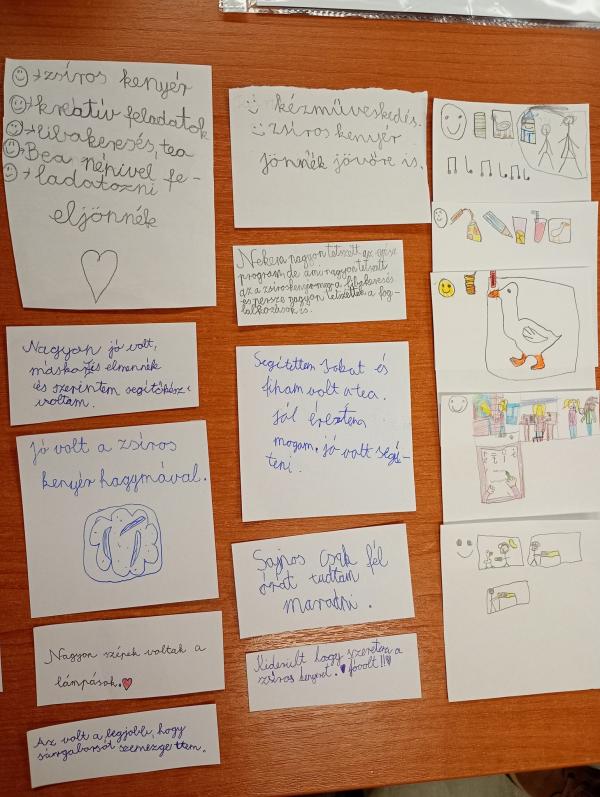 →zsíros kenyér
→kreatív feladatok
→libakeresés, tea
→Bea nénivel fe-
→ladatozni
eljönnék
Nagyon jó volt,
máskor is elmennék
és szerintem segítőkész
voltam.
Jó volt a zsíros
kenyér hagymával.
Nagyon szépek voltak a
lámpások.
Az volt a legjobb, hogy
sárgaborsót szemezgettem.
kézműveskedés.
zsíros kenyér
jönnék jövőre is.
Nekem nagyon tetszett az egész
program, de ami nagyon tetszett
az a zsíroskenyér meg a libakeresés
és persze nagyon tetszettek a fog-
lalkozások is.
Segítettem sokat és
finom volt a tea.
Jól éreztem
magam, jó volt segí-
teni.
Sajnos csak fél
órát tudtam
maradni.
Kiderült hogy szeretem a
zsíros kenyeret. Jóóólt!!